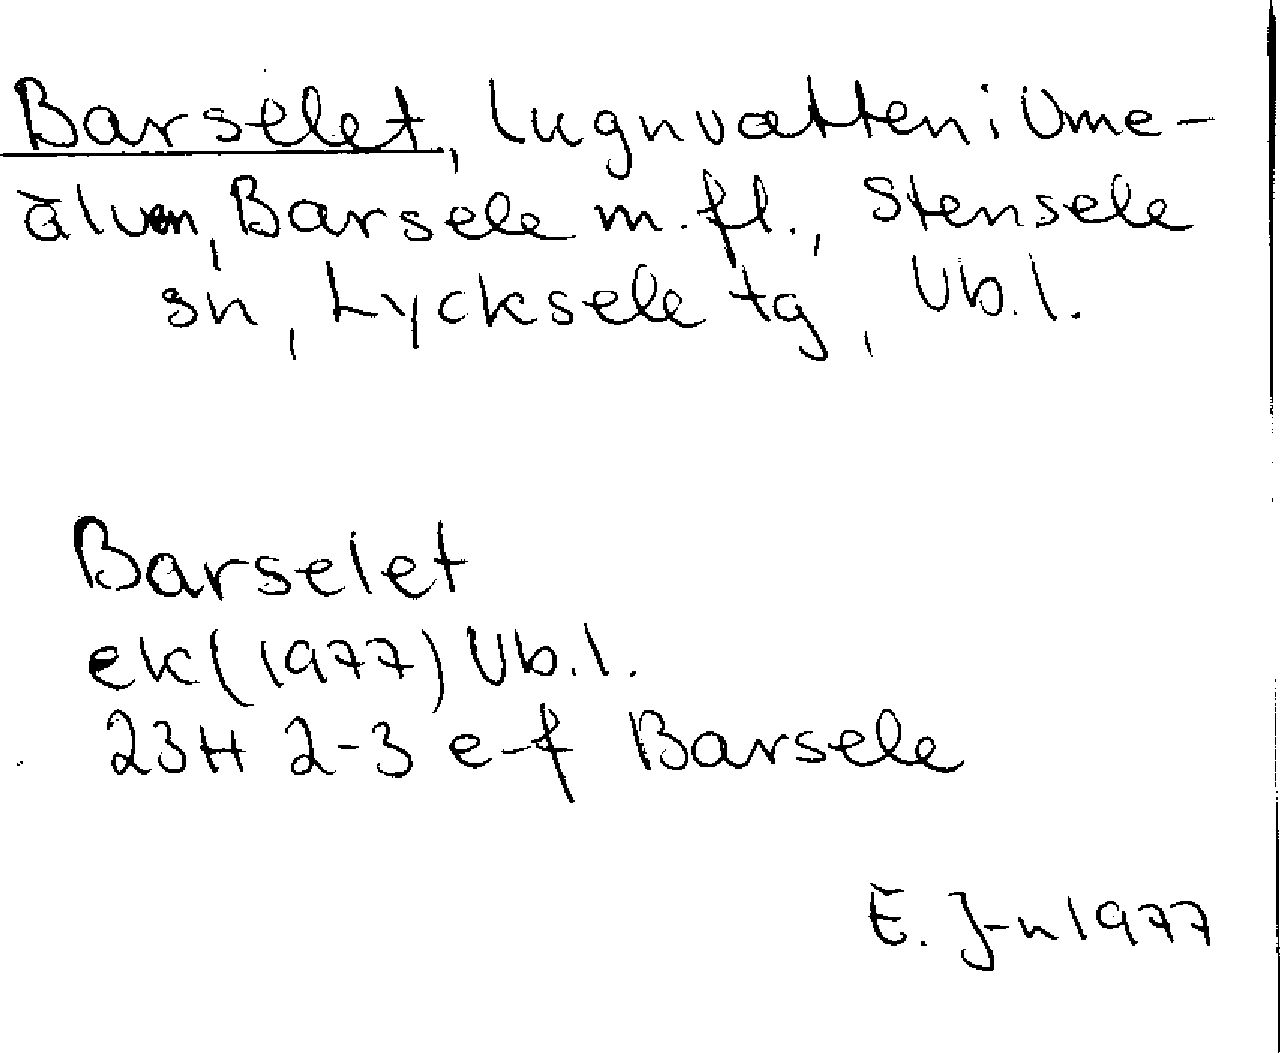 Barselet, lugnvatten i Ume-
älven, Barsele m.fl., Stensele
sn, Lycksele tg, Vb.l.
Barselet
ek(1977) Vb.l.
23H 2-3 e-f Barsele
E. J-n 1977